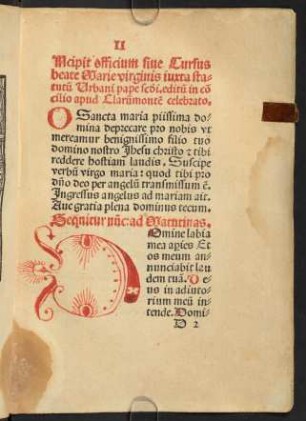 II
Ncipit officium siue Cursus
beate Marie virginis iuxta sta-
tutū Urbani pape scdi, editū in cō
cilio apud Clarumontē celebrato.
O Sancta maria piissima do-
mina deprecare pro nobis vt
mereamur benignissimo filio tuo
domino nostro Jhesu christo & tibi
reddere hostiam laudis, Suscipe
verbū virgo maria: quod tibi pro
dño deo per angelū transmissum ē.
Ingressus angelus ad mariam ait.
Aue gratia plena dominus tecum.
Sequitur nūc: ad Matutinas.
Domine labia
mea apies Et
os meum an-
nunciabit lau
dem tuā. De
us in adiuto-
rium meū in-
tende. Domi-
D 2